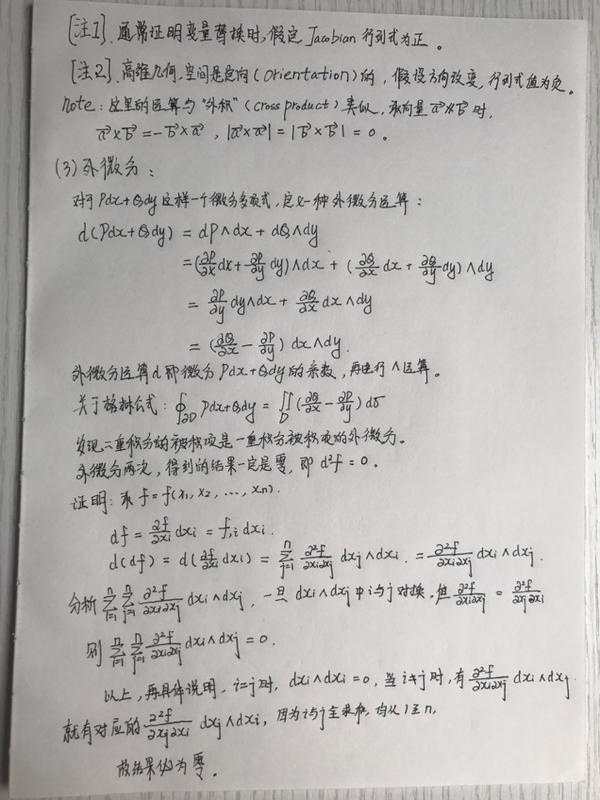 [注1]. 通常证明变量替换时,假定 Jacobian 行列式为正。
[注2]. 高维几何,空间是定向(orientation)的,假设方向改变,行列式值为负。
note: 这里的运算与“外积”(cross product)类似,取向量 a⃗×b⃗ 时,
a⃗×b⃗ = -b⃗×a⃗ , |a⃗×a⃗| = |b⃗×b⃗| = 0 。
(3) 外微分:
对于 Pdx+Qdy 这样一个微分多项式,定义一种外微分运算:
d(Pdx+Qdy) = dP∧dx + dQ∧dy
= (∂P/∂x dx + ∂P/∂y dy)∧dx + (∂Q/∂x dx + ∂Q/∂y dy)∧dy
= ∂P/∂y dy∧dx + ∂Q/∂x dx∧dy
= (∂Q/∂x - ∂P/∂y) dx∧dy.
外微分运算 d 即微分 Pdx+Qdy 的系数,再进行∧运算。
关于格林公式: ∮∂D Pdx+Qdy = ∬D (∂Q/∂x - ∂P/∂y) dσ
发现二重积分的被积项是一重积分被积项的外微分。
外微分两次,得到的结果一定是零,即 d²f = 0 。
证明: 取 f = f(x₁, x₂, ..., xn).
df = ∂f/∂xi dxi = f,i dxi .
d(df) = d(∂f/∂xi dxi) = ∑ⁿj=1 ∂²f/∂xi∂xj dxj∧dxi . = ∂²f/∂xi∂xj dxi∧dxj .
分析 ∑ⁿi=1 ∑ⁿj=1 ∂²f/∂xi∂xj dxi∧dxj , 一旦 dxi∧dxj 中 i 与 j 对换, 但 ∂²f/∂xi∂xj = ∂²f/∂xj∂xi
则 ∑ⁿi=1 ∑ⁿj=1 ∂²f/∂xi∂xj dxi∧dxj = 0 .
以上,再具体说明, i=j 时, dxi∧dxi = 0 , 当 i≠j 时, 有 ∂²f/∂xi∂xj dxi∧dxj
就有对应的 ∂²f/∂xj∂xi dxj∧dxi , 因为 i 与 j 全求和, 均从 1 至 n,
故结果化为零。